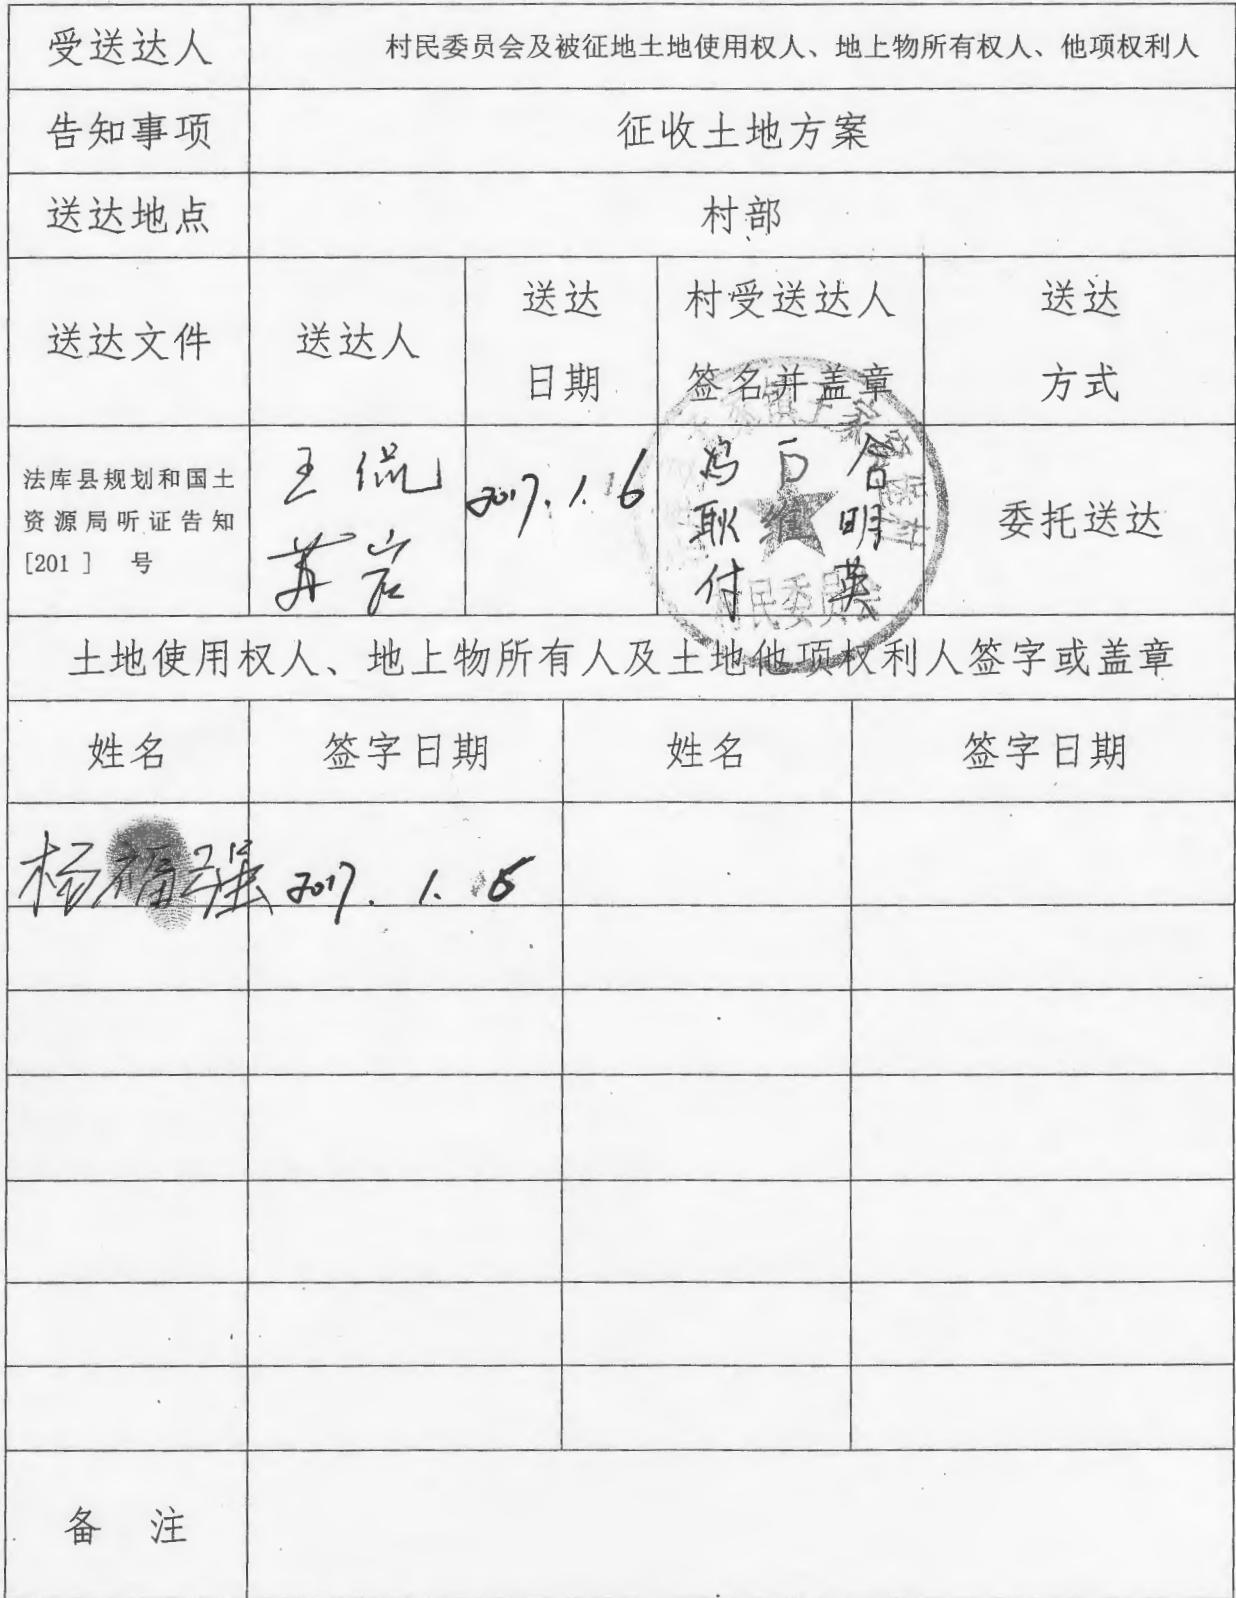 受送达人
村民委员会及被征地土地使用权人、地上物所有权人、他项权利人
告知事项
征收土地方案
送达地点
村部
送达文件
送达人
送达
日期
村受送达人
签名并盖章
送达
方式
法库县规划和国土
资源局听证告知
[201 ] 号
王侃
苏岩
2017.1.16
冯 合
耿 明
付 英
村民委员会
委托送达
土地使用权人、地上物所有人及土地他项权利人签字或盖章
姓名
签字日期
姓名
签字日期
杨福强
2017.1.
备 注